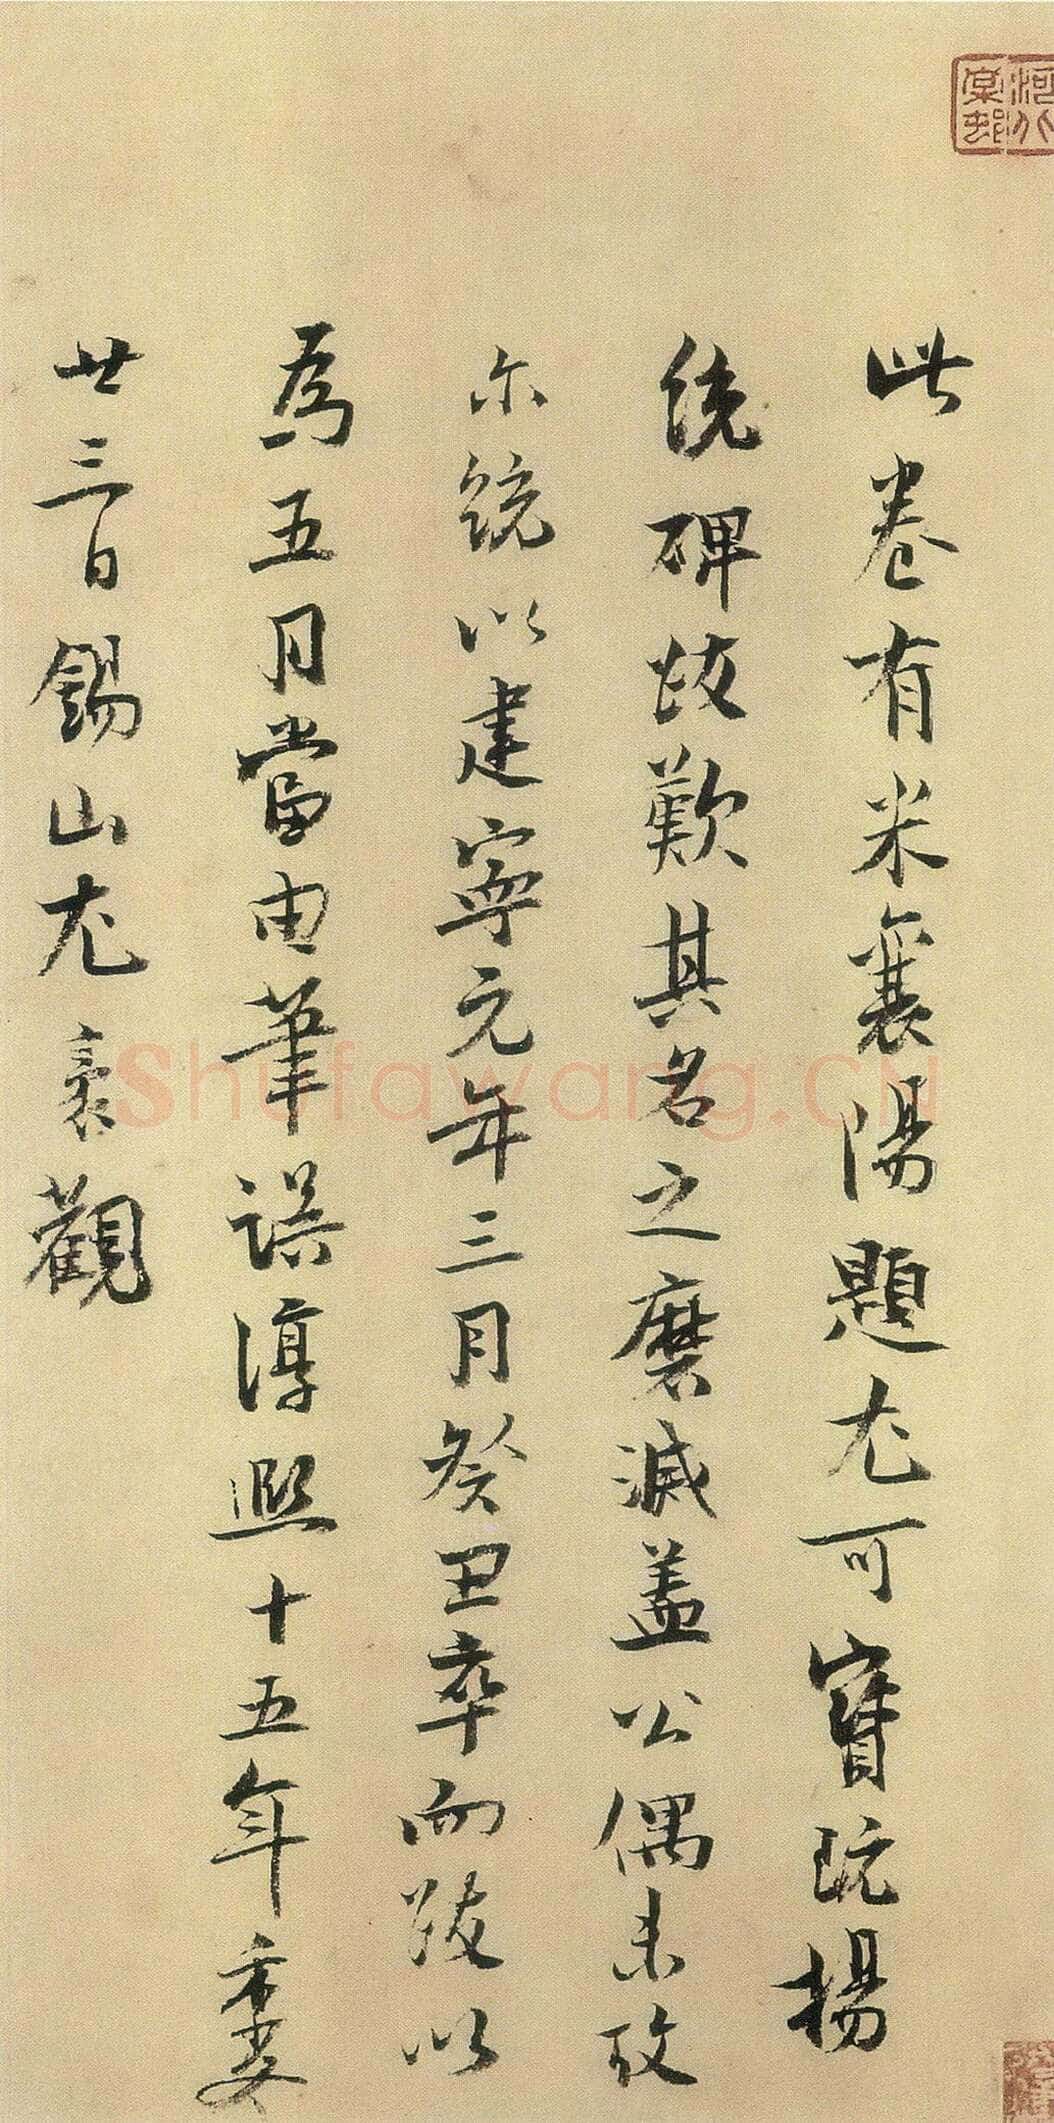 此卷有米襄陽題尤可寶玩揚
統碑跋歎其名之磨滅盖公偶未攷
尔統以建寧元年三月癸丑卒而跋以
為五月當由筆誤淳熙十五年季夏
廿三日錫山尤袤觀
Shufawang.CN